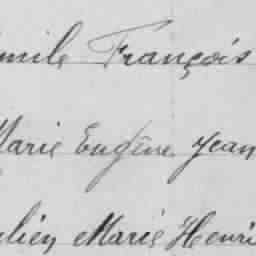 Emile François
Marie Eugène Jean
Julien Marie Henri